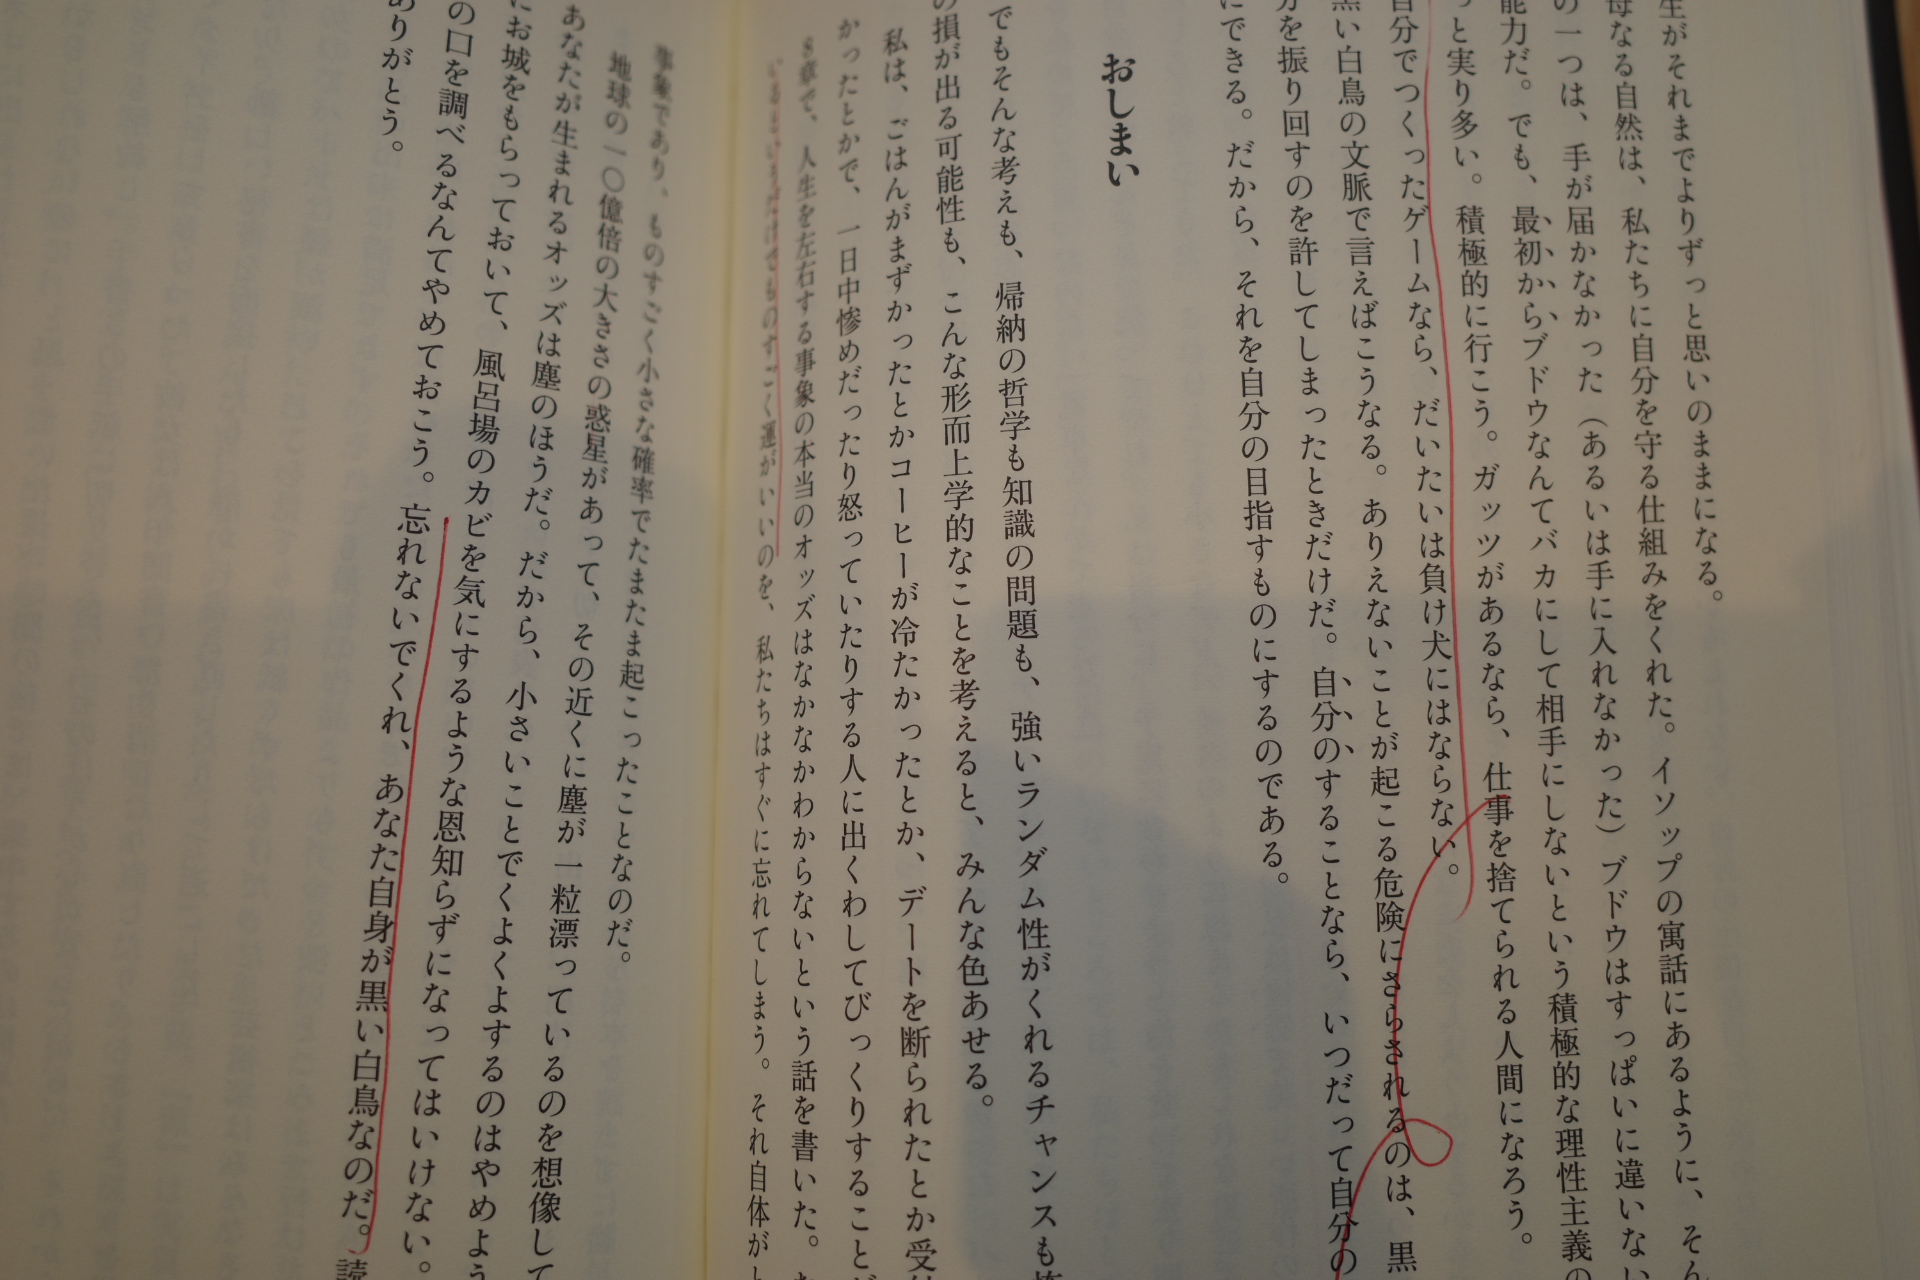 生がそれまでよりずっと思いのままになる。
母なる自然は、私たちに自分を守る仕組みをくれた。イソップの寓話にあるように、そん
の一つは、手が届かなかった（あるいは手に入れなかった）ブドウはすっぱいに違いない
能力だ。でも、最初からブドウなんてバカにして相手にしないという積極的な理性主義の
っと実り多い。積極的に行こう。ガッツがあるなら、仕事を捨てられる人間になろう。
自分でつくったゲームなら、だいたいは負け犬にはならない。
黒い白鳥の文脈で言えばこうなる。ありえないことが起こる危険にさらされるのは、黒
分を振り回すのを許してしまったときだけだ。自分のすることなら、いつだって自分の
にできる。だから、それを自分の目指すものにするのである。
おしまい
でもそんな考えも、帰納の哲学も知識の問題も、強いランダム性がくれるチャンスも
の損が出る可能性も、こんな形而上学的なことを考えると、みんな色あせる。
私は、ごはんがまずかったとかコーヒーが冷たかったとか、デートを断られたとか受
かったとかで、一日中惨めだったり怒っていたりする人に出くわしてびっくりすること
8章で、人生を左右する事象の本当のオッズはなかなかわからないという話を書いた。
いるまいまだけでものすごく運がいいのを、私たちはすぐに忘れてしまう。それ自体が
事象であり、ものすごく小さな確率でたまたま起こったことなのだ。
地球の一〇億倍の大きさの惑星があって、その近くに塵が一粒漂っているのを想像して
あなたが生まれるオッズは塵のほうだ。だから、小さいことでくよくよするのはやめよう
にお城をもらっておいて、風呂場のカビを気にするような恩知らずになってはいけない。
の口を調べるなんてやめておこう。忘れないでくれ、あなた自身が黒い白鳥なのだ。読
ありがとう。